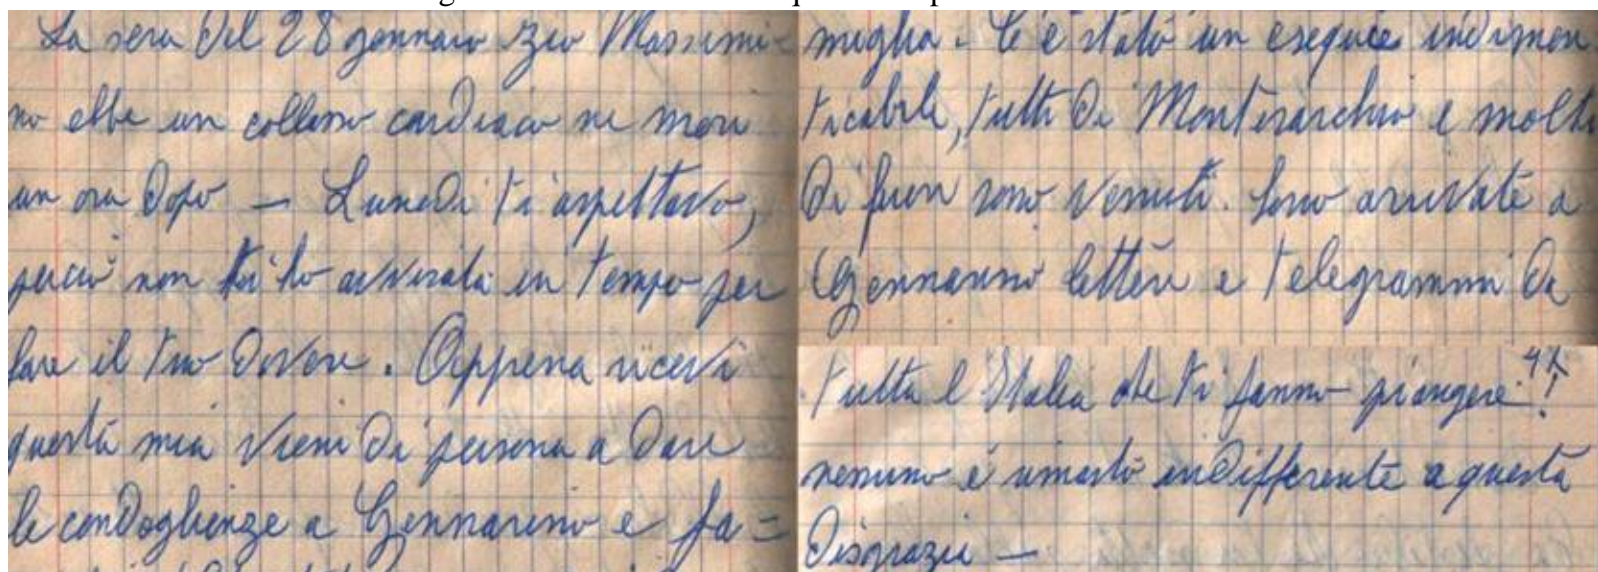 La sera del 28 gennaio zio Massimi-
no ebbe un collasso cardiaco ne morì
un ora dopo — Lunedì ti aspettavo,
perciò non ti ho avvisata in tempo per
fare il tuo dovere. Appena ricevi
questa mia vieni di persona a dare
le condoglienze a Gennarino e fa=
miglia. C'è stato un esequie indimen
ticabile, tutti di Montesarchio e molti
di fuori sono venuti. Sono arrivate a
Gennarino lettere e telegrammi da
tutta l'Italia che ti fanno piangere!
nessuno è rimasto indifferente a questa
disgrazia —